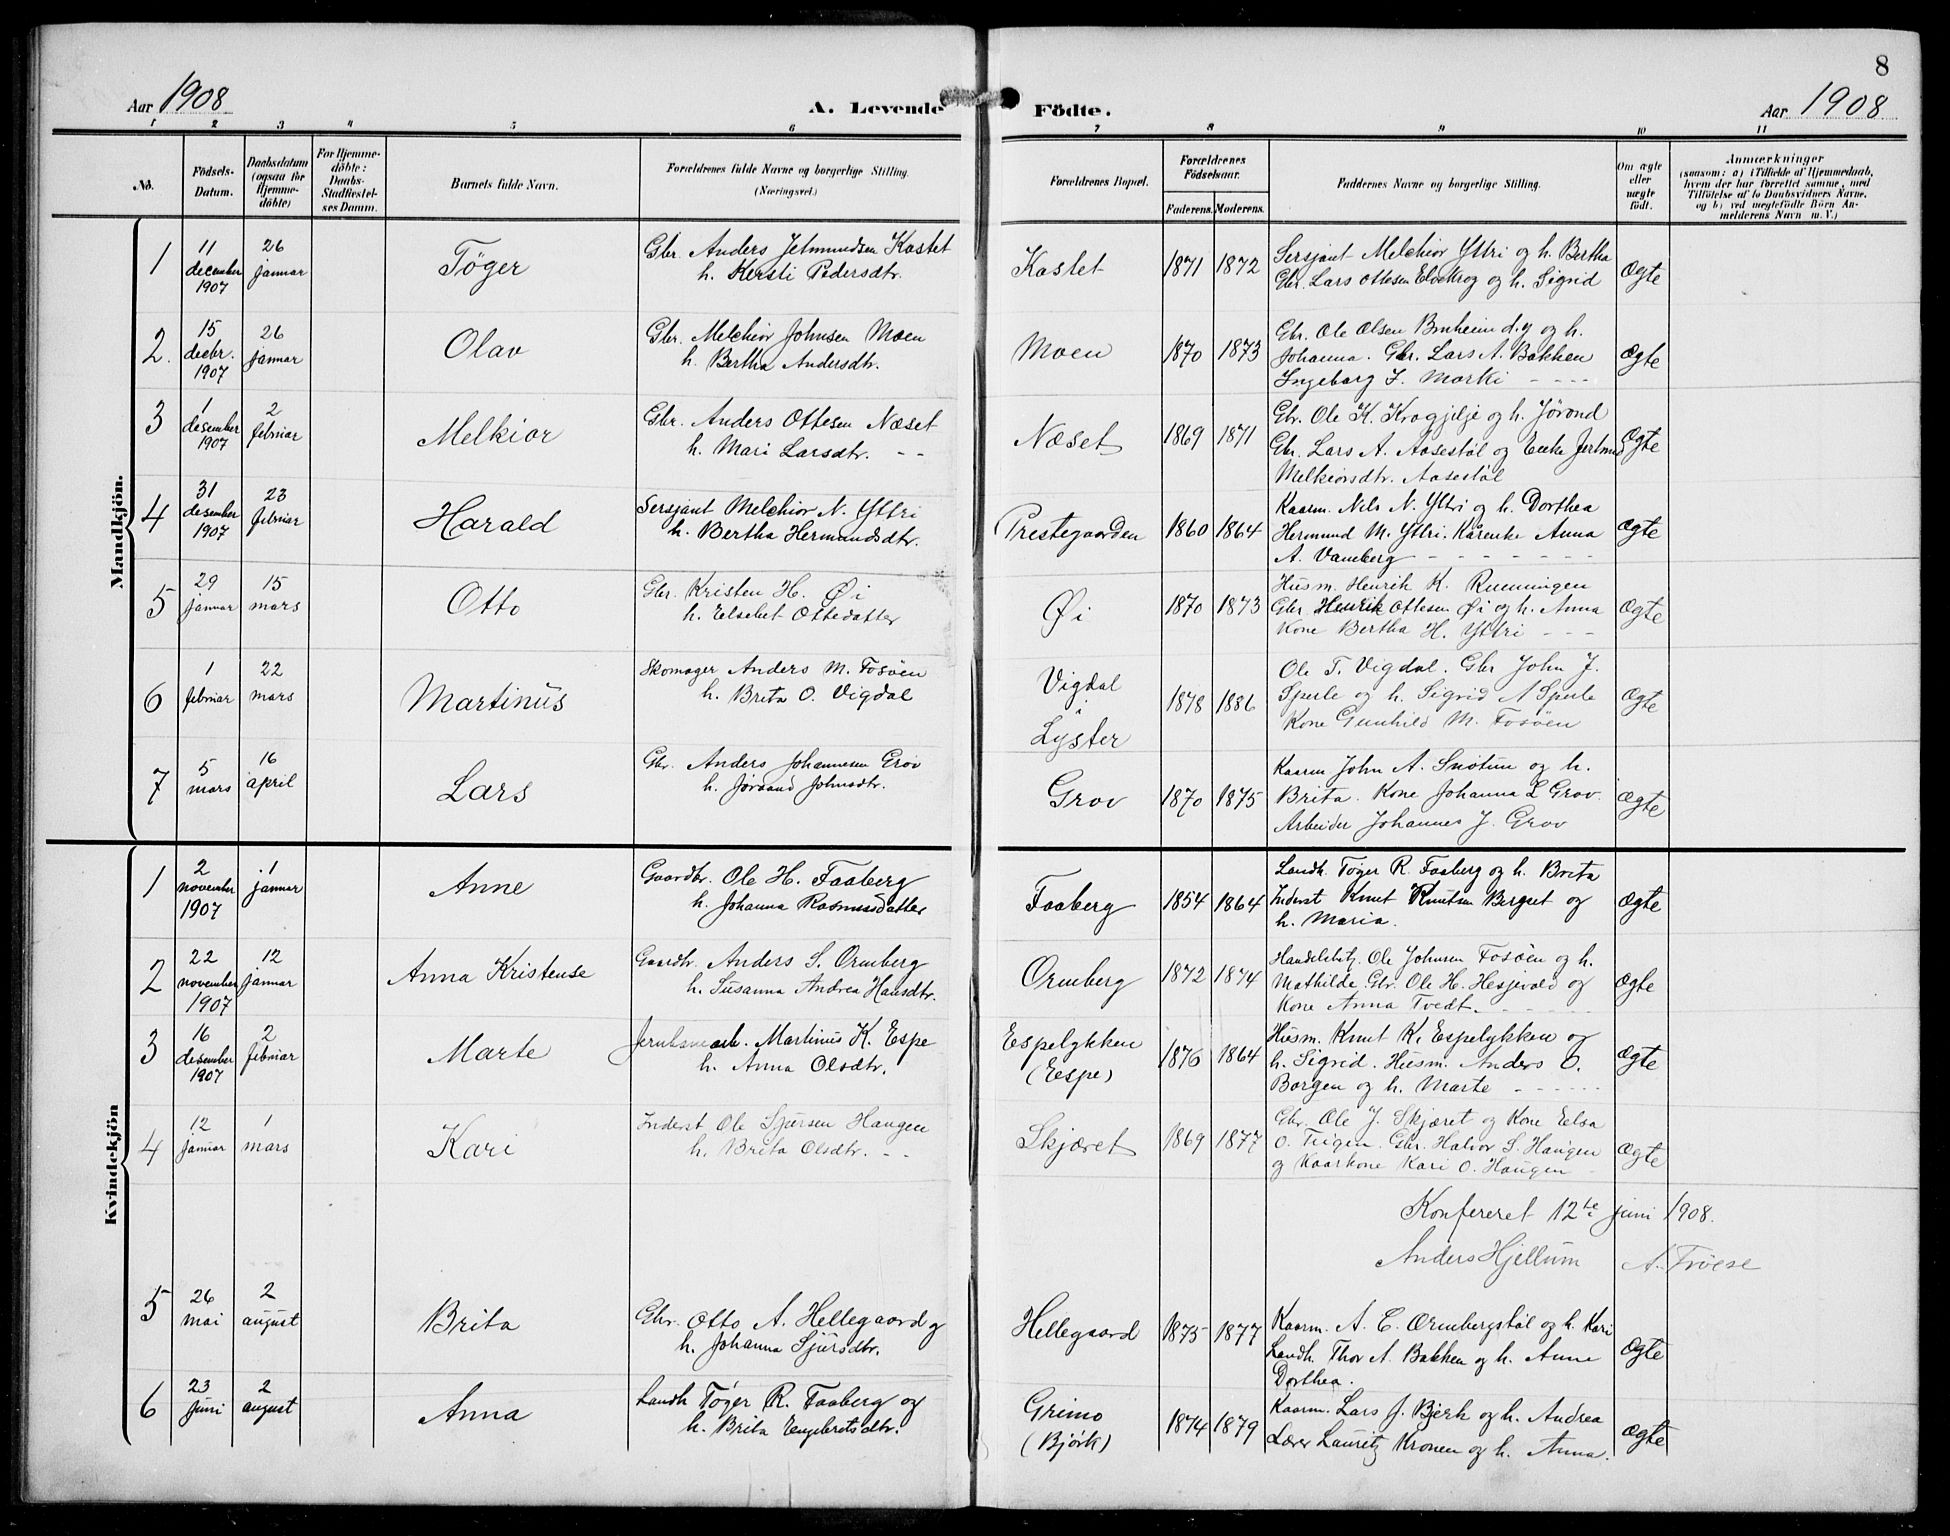 8
Aar 1908 A. Levende Födte. Aar 1908
1 2 3 4 5 6 7 8 9 10 11
No. Födsels-Datum. Daabsdatum (ogsaa for Hjemme-döbte) For Hjemme-döbte: Daabs-Stadfæstel-ses Datum. Barnets fulde Navn. Forældrenes fulde Navne og borgerlige Stilling. (Næringsvei.) Forældrenes Bopæl. Forældrenes Födselsaar. Faderens. Moderens. Faddernes Navne og borgerlige Stilling. Om ægte eller uægte födt. Anmærkninger
(saasom: a) i Tilfælde af Hjemmedaab,
hvem der har forrettet samme, med
Tilföielse af to Daabsvidners Navne,
og b) ved uægtefödte Börn An-
melderens Navn m. V.)
Mandkjön.
1 11 december 1907 26 januar Tøger Gbr. Anders Jetmundsen Kastet
h. Kersti Pedersdtr. Kastet 1871 1872 Sersjant Melchior Yttri og h. Bertha
Gbr. Lars Ottesen Elvekrog og h. Sigrid Ægte
2. 15 decbr. 1907 26 januar Olav Gbr. Melchior Johnsen Moen
h. Bertha Andersdtr. Moen 1870 1873 Gbr. Ole Olsen Bruheim d.y og h.
Johanna. Gbr. Lars A. Bakken
Ingeborg J. Morki - - - - Ægte
3 1 desember 1907 2 februar Melkior Gbr. Anders Ottesen Næset
h. Mari Larsdtr. - - Næset 1869 1871 Gbr. Ole K. Krogjelje og h. Jørond
Gbr. Lars A. Aasestøl og Enke
Melkiorsdtr. Aasestøl Ægte
4 31 desember 1907 23 februar Harald Sersjant Melchior N. Yttri
h. Bertha Hermundsdtr. Prestegaarden 1860 1864 Kaarm. Nils N. Yttri og h. Dorthea
Hermund M. Yttri. Karenke Anna
A. Vamberg - - - - - - Ægte
5 29 januar 15 mars Otto Gbr. Kristen H. Øi
h. Elsebet Ottedatter Øi 1870 1873 Husm. Henrik K. Runningen
Gbr. Henrik Ottesen Øi og h. Anna
Kone Bertha H. Yttri - - - Ægte
6 1 februar 22 mars Martinus Skomager Anders M. Fosøen
h. Brita O. Vigdal Vigdal
i
Lyster 1878 1886 Ole T. Vigdal. Gbr John J.
Sperle og h. Sigrid A Sperle
Kone Gunhild M. Fosøen Ægte
7 5 mars 16 april Lars Gbr. Anders Johannesen Grov
h. Jørand Johnsdtr. Grov 1870 1875 Kaarm John A. Snøtun og h.
Brita. Kone Johanna L Grov.
Arbeider Johannes J. Grov Ægte
Kvindekjön
1 2 november 1907 1 januar Anne Gaardbr. Ole H. Faaberg
h. Johanna Rasmusdatter Faaberg 1854 1864 Landh. Tøger R. Faaberg og h. Brita
Inderst Knut Knutsen Bergset og
h. Maria. Ægte
2 22 november 1907 12 januar Anna Kristense Gaardbr. Anders S. Ormberg
h. Susanna Andrea Hansdtr. Ormberg 1872 1874 Ole Johnsen Fosøen og h.
Mathilde. Gbr. Ole H. Hesjevold og
Kone Anna Tvedt. - - - - - Ægte
3 16 desember 1907 2 februar Marte Martinus K. Espe
h. Anna Olsdtr. Espelykken
(Espe) 1876 1864 Husm. Knut K. Espelykken og
h. Sigrid. Husm. Anders O.
Borgen og h. Marte - - - - - Ægte
4 12 januar 1 mars Kari Inderst Ole Sjursen Haugen
h. Brita Olsdtr. - - Skjæret 1869 1877 Gbr. Ole J. Skjæret og Kone Elsa
O. Teigen. Gbr. Halvor S. Haugen
og Kaarkone Kari O. Haugen - Ægte
Konfereret 12te juni 1908.
Anders Hjellum A. Frøese
5 26 mai 2 august Brita Gbr. Otto A. Hellegaard og
h. Johanna Sjursdtr. Hellegaard 1875 1877 Kaarm. A. E. Ormbergstøl og h. Kari
Landh. Thor A. Bakken og h. Anne
Dorthea. Ægte
6 23 juni 2 august Anna Landh Tøger R. Faaberg og
h. Brita Engebretsdtr. Grimo
(Bjørk) 1874 1879 Kaarm. Lars J. Bjørk og h. Andrea
Lærer Lauritz Kronen og h. Anna. Ægte